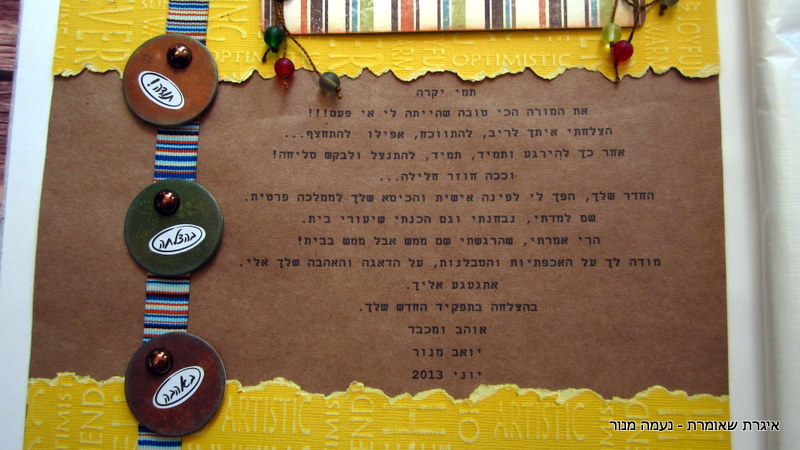 OPTIMISTIC
OPTIMISTIC
תודה!
תמי יקרה
את המורה הכי טובה שהייתה לי אי פעם!!!
הצלחתי איתך לריב, להתווכח, אפילו להתחצף...
אחר כך להירגע ותמיד, תמיד, להתנצל ולבקש סליחה!
וככה חוזר חלילה...
החדר שלך, הפך לי לפינה אישית והכיסא שלך לממלכה פרטית.
שם למדתי, נבחנתי וגם הכנתי שיעורי בית.
הרי אמרתי, שהרגשתי שם ממש אבל ממש בבית!
מודה לך על האכפתיות והסבלנות, על הדאגה והאהבה שלך אלי.
אתגעגע אליך.
בהצלחה בתפקיד החדש שלך.
אוהב ומכבד
יואב מנור
יוני 2013
בהצלחה
באהבה
ARTISTIC
OF
ARTISTIC
איגרת שאומרת - נעמה מנור